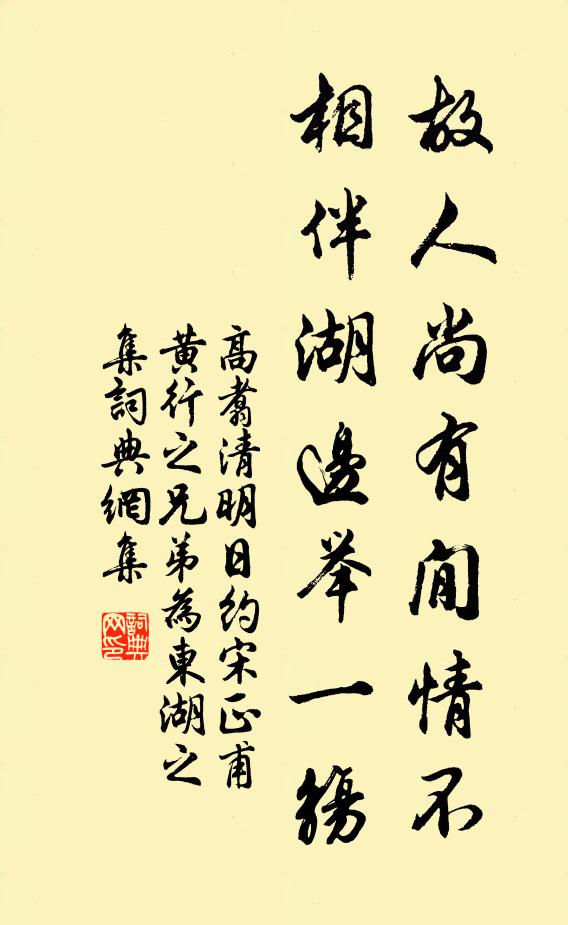 故人尚有閒情不
相伴湖邊举一觴
高翥清明日約宋正甫
黄行之兄弟為東湖之
集詞典網集
詞典
网印